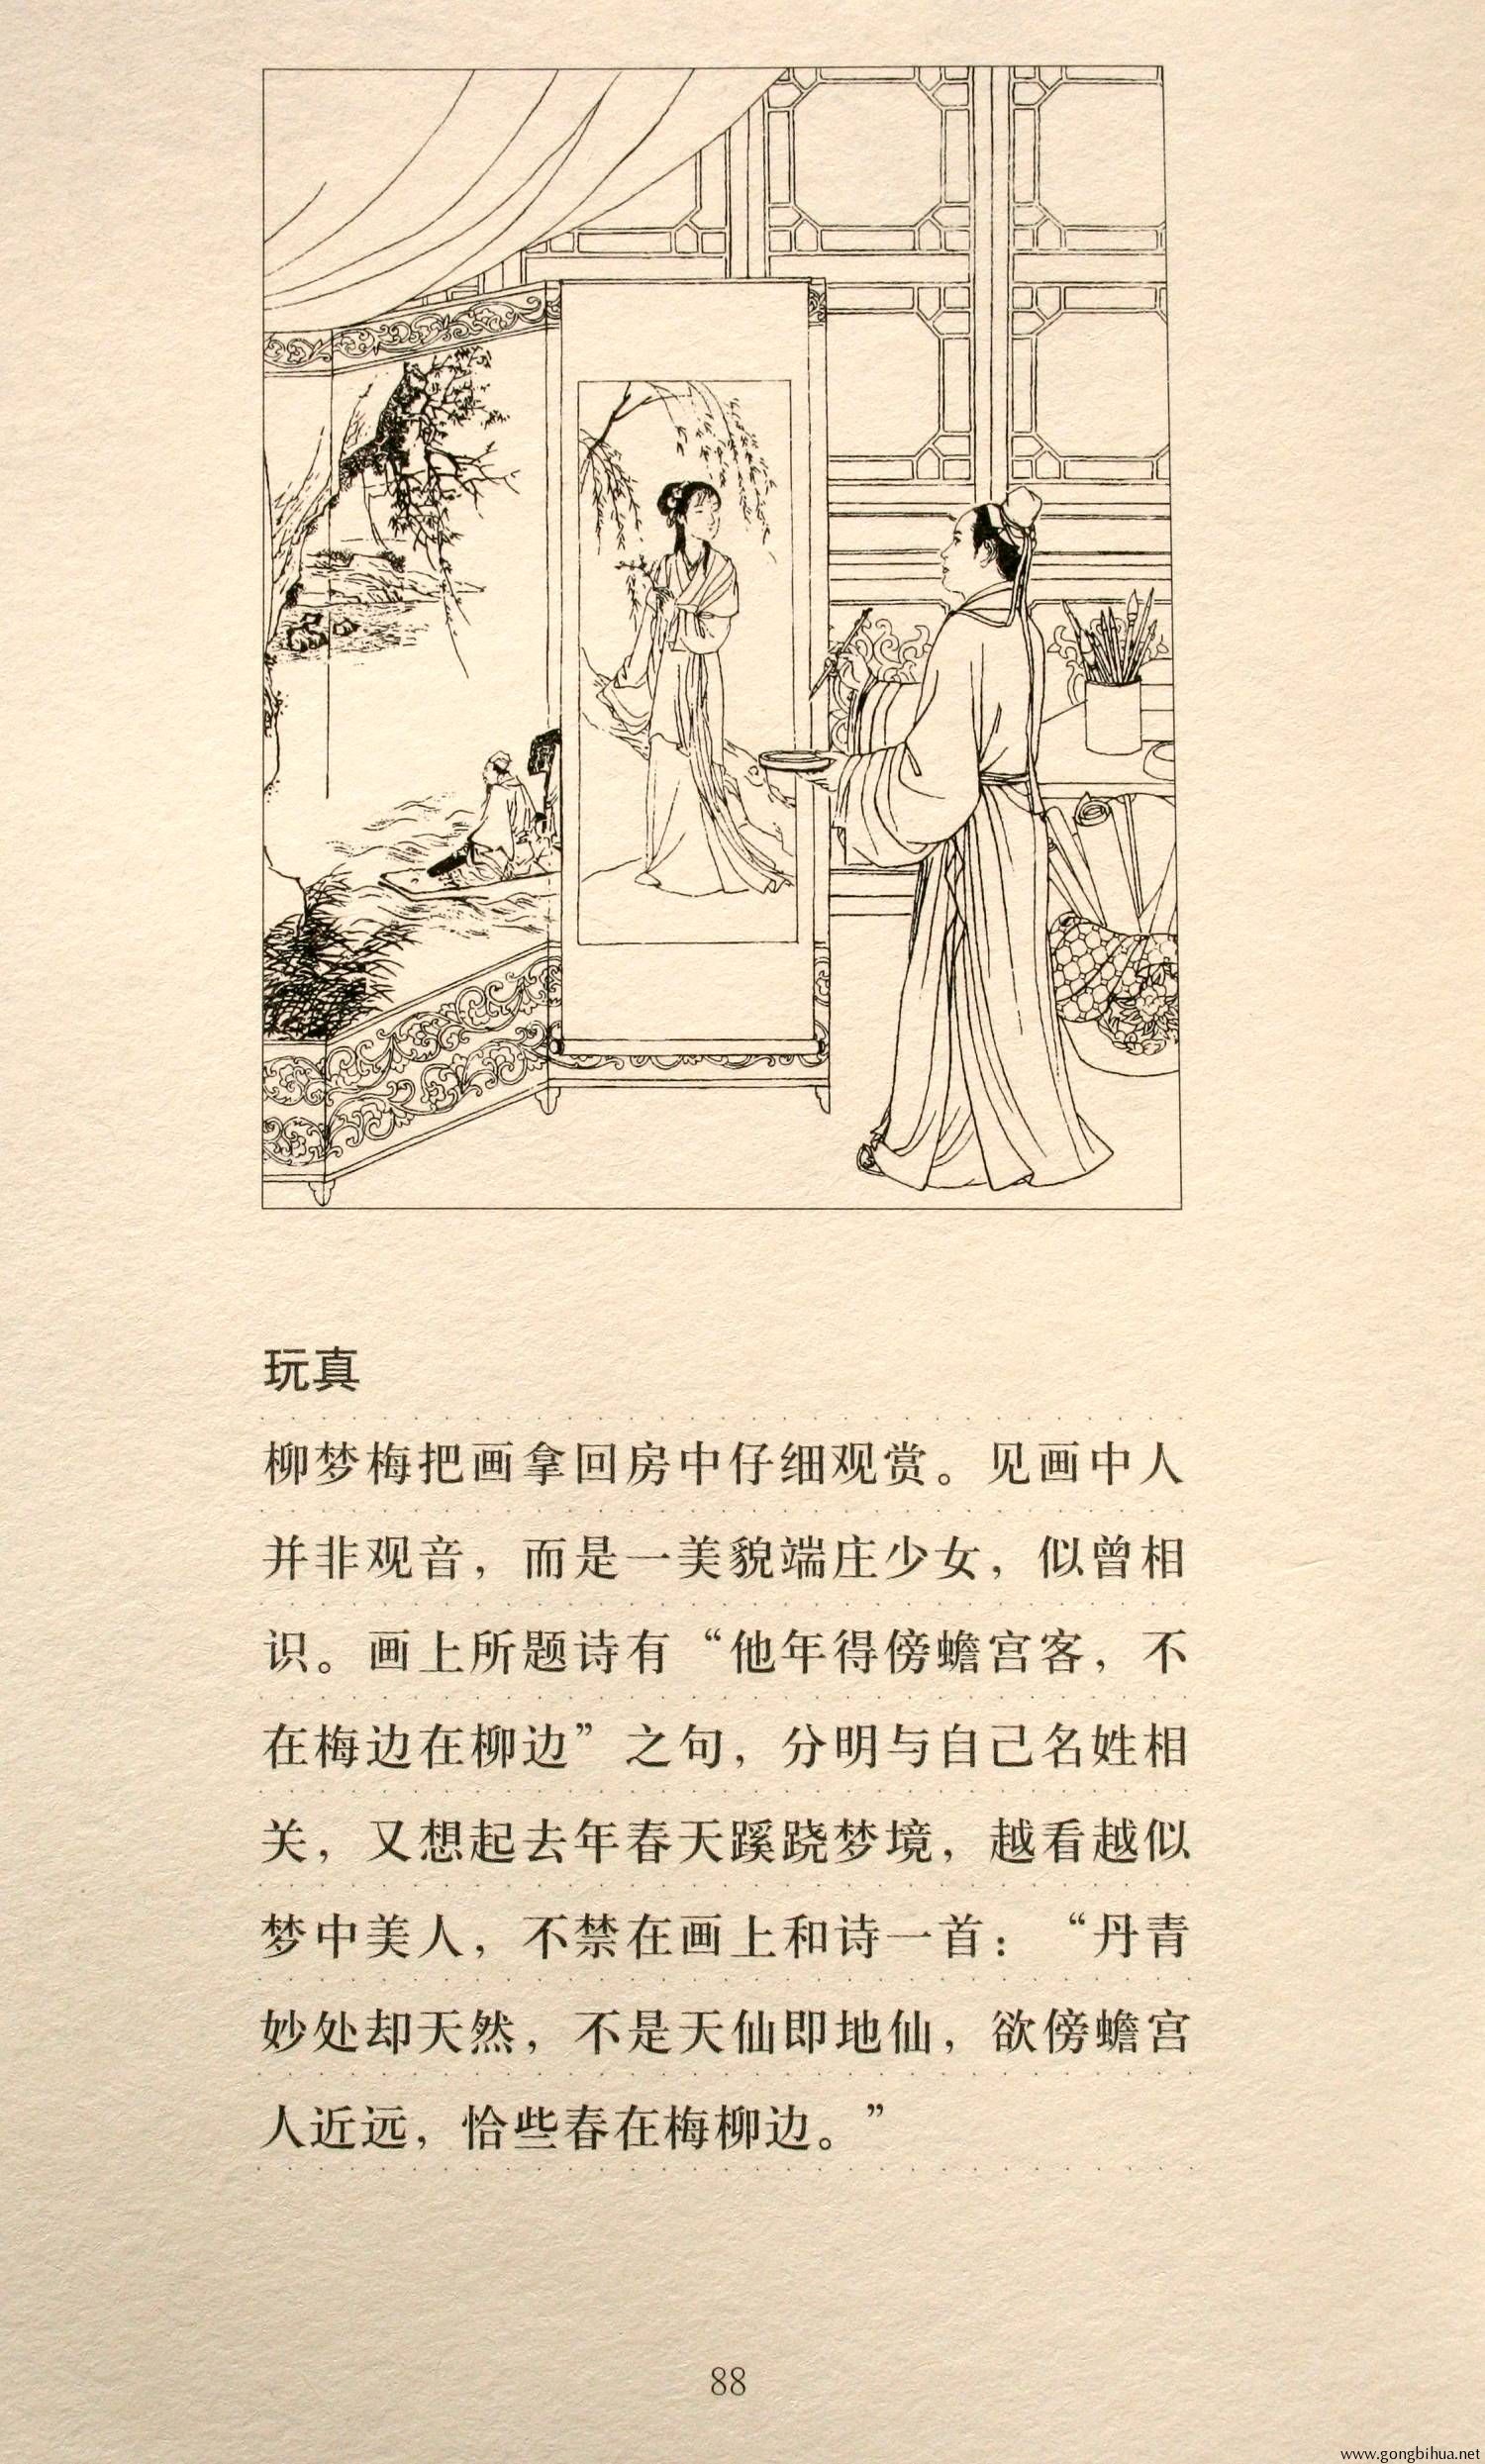 玩真
柳梦梅把画拿回房中仔细观赏。见画中人
并非观音，而是一美貌端庄少女，似曾相
识。画上所题诗有“他年得傍蟾宫客，不
在梅边在柳边”之句，分明与自己名姓相
关，又想起去年春天蹊跷梦境，越看越似
梦中美人，不禁在画上和诗一首：“丹青
妙处却天然，不是天仙即地仙，欲傍蟾宫
人近远，恰些春在梅柳边。”
88
www.gongbihua.net